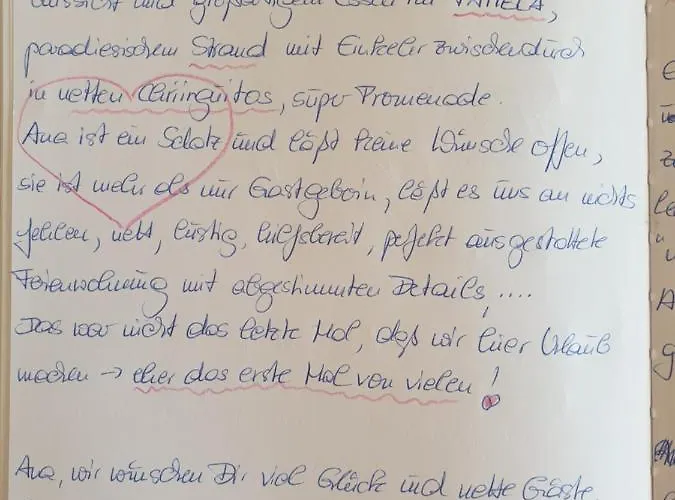 und großartigem Essen im PAMELA,
paradiesischem Strand mit Einkehr zwischendurch
in netten Chiringuitos, super Promenade.
Ana ist ein Schatz und läßt keine Wünsche offen,
sie ist mehr als nur Gastgeberin, läßt es uns an nichts
fehlen, nett, lustig, hilfsbereit, perfekt ausgestattete
Ferienwohnung mit abgestimmten Details, ....
Das war nicht das letzte Mal, daß wir hier Urlaub
machen → eher das erste Mal von vielen!
Ana, wir wünschen Dir viel Glück und nette Gäste